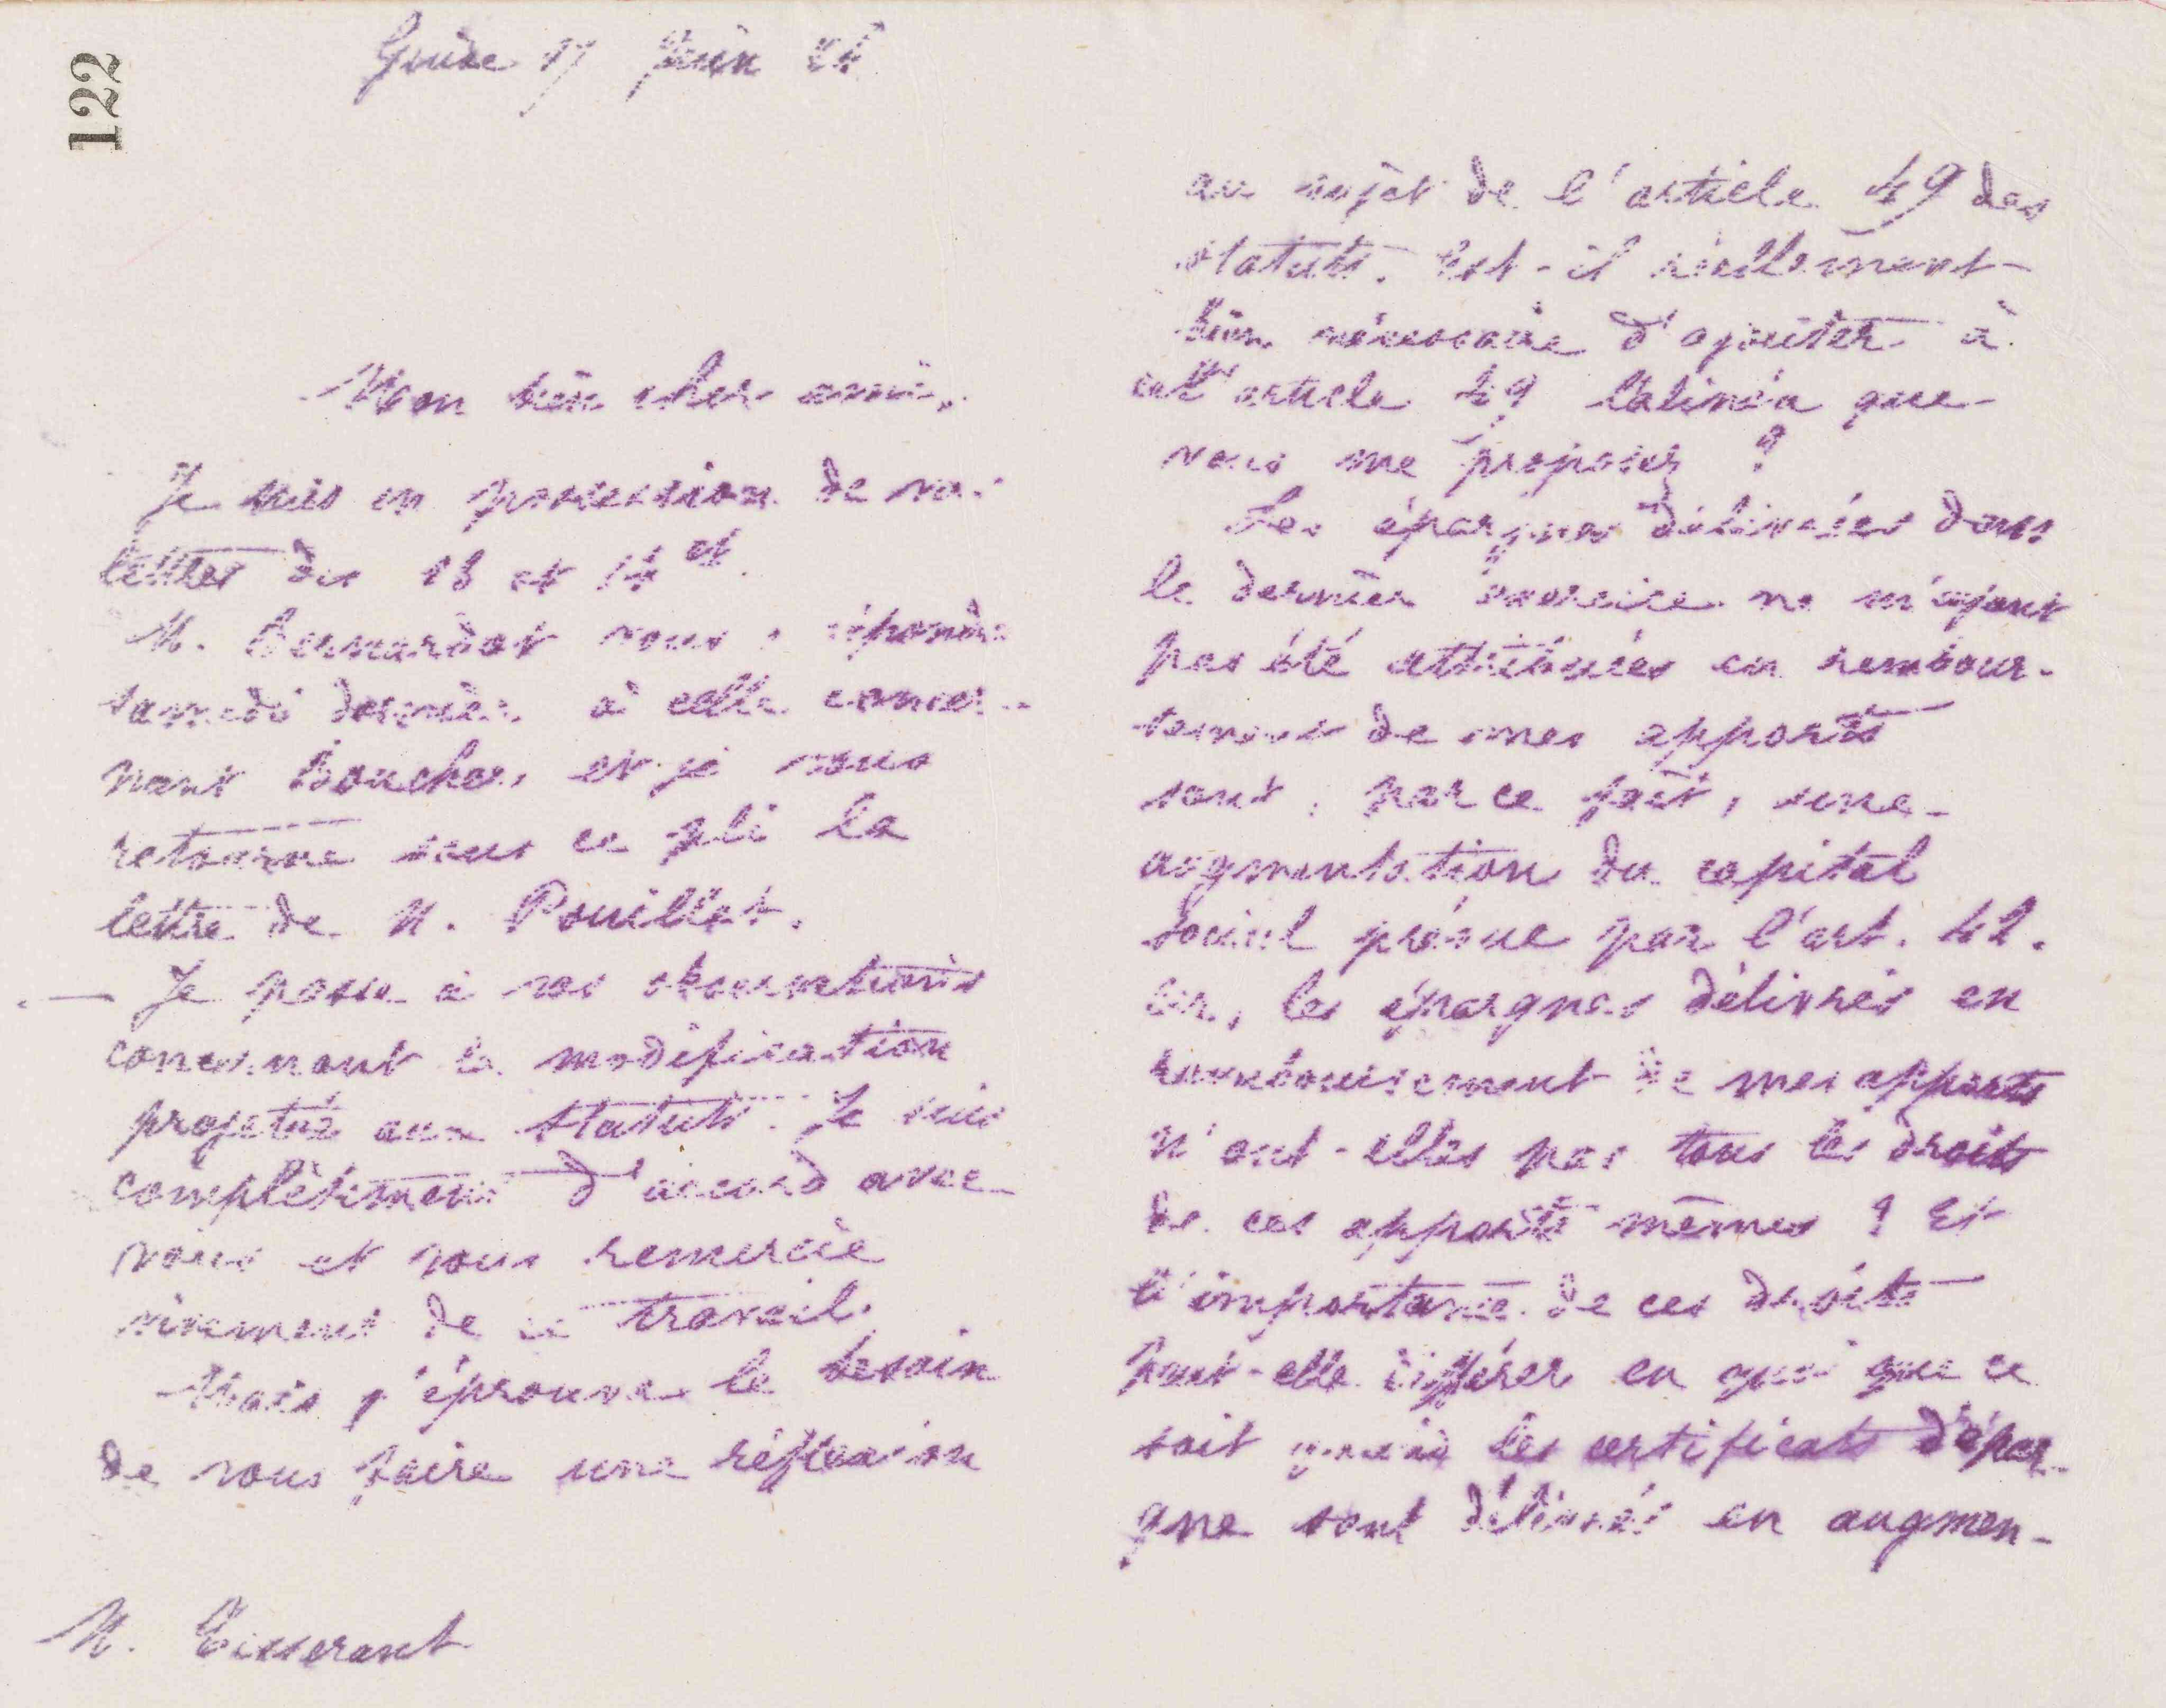 122
Guise 17 Juin 86
Mon bien cher ami,
Je suis en possession de vos
lettres des 13 et 14 ct.
M. Bernardot vous a répondu
samedi dernier à celle concer-
nant Boucher, et je vous
retourne sous ce pli la
lettre de M. Pouillet.
Je passe à vos observations
concernant la modification
projetée aux statuts. Je suis
complètement d'accord avec
vous et vous remercie
vivement de ce travail.
Mais j'éprouve le besoin
de vous faire une réflexion
M. Tisserant
au sujet de l'article 49 des
statuts. Est-il réellement
bien nécessaire d'ajouter à
cet article 49 l'alinéa que
vous me proposez ?
Les épargnes délivrées dans
le dernier exercice ne m'ayant
pas été attribuées en rembour-
sement de mes apports
sont, par ce fait, une
augmentation du capital
social prévue par l'art. 42.
Or, les épargnes délivrées en
remboursement de mes apports
n'ont-elles pas tous les droits
de ces apports mêmes ? Et
l'importance de ces droits
peut-elle différer en quoi que ce
soit quand les certificats d'épar-
gne sont délivrés en augmen-